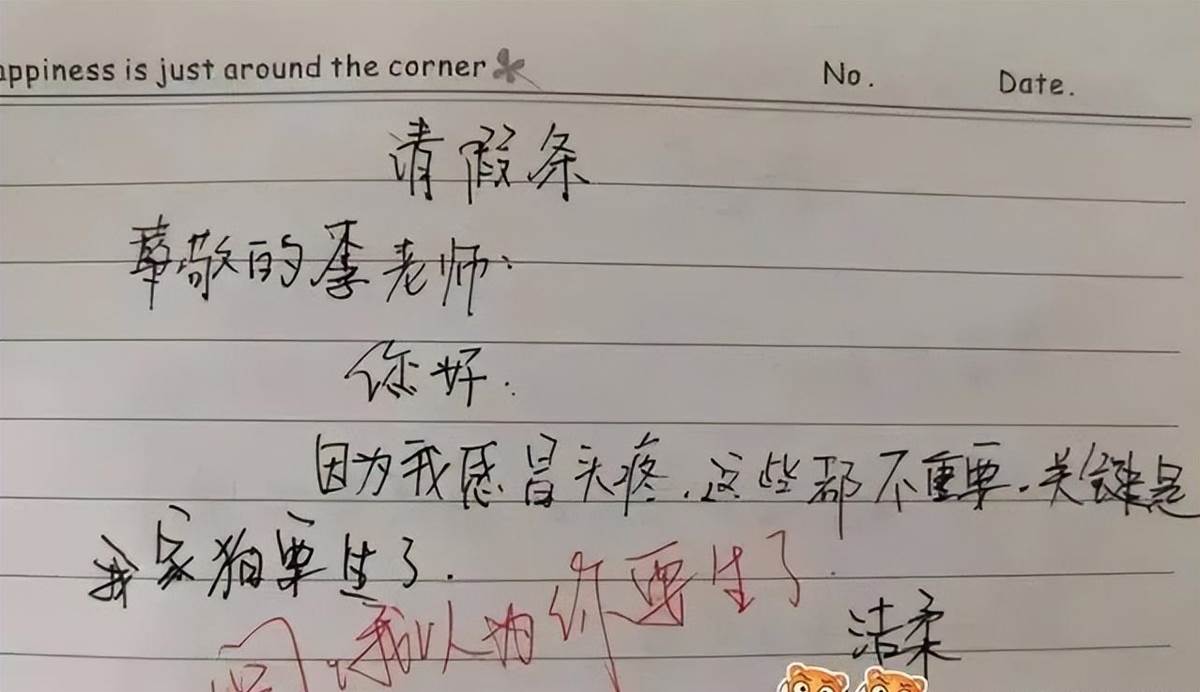 appiness is just around the corner No. Date.
请假条
尊敬的李老师：
你好.
因为我感冒头疼.这些都不重要.关键是
我家狗要生了.
我以为你要生了.
洁柔